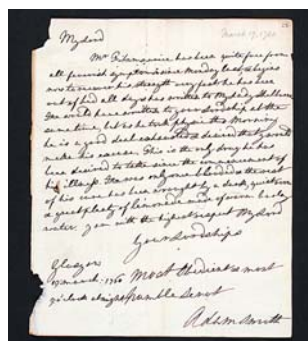 My Lord
Mr Fitzmaurice has been quite free from
all feverish symptoms since Monday last & begins
now to recover his strength very fast. he has been
out of bed all day & has written to My Lady Shelburne
He would have written to your Lordship at the
same time, but as he took physic this Morning
he is a good deal exhausted & desired that I would
make his excuse. This is the only drug he has
been desired to take since the commencement of
his illness. He was only once blooded & the rest
of his cure has been brought by a
a great plenty of lemonade made of warm barley
water. I am with the highest respect My Lord
Your Lordships
Glasgow
March 1760 Most Obedient & most
o'clock at night humble Servt
Adam Smith
March 17, 1760